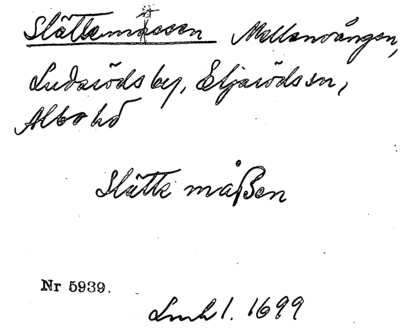 Slättemåssen Mellanvången,
Ludaröds by, Eljaröds sn,
Albo hd
Slätte måßen
Nr 5939.
Lmh 1. 1699